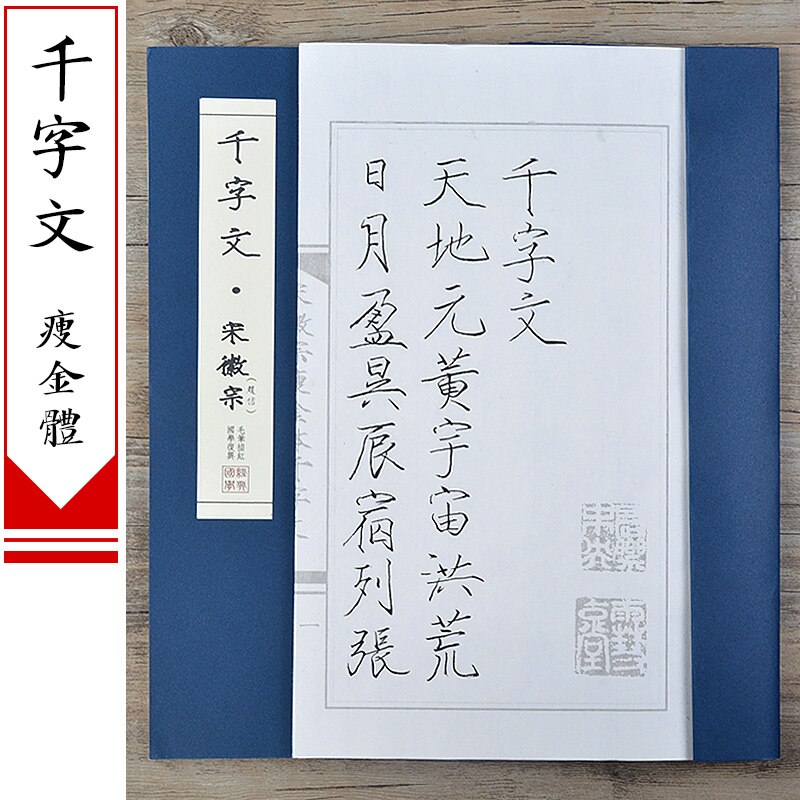 千字文
瘦金體
千字文・宋徽宗
毛筆描紅
國學復興
經典
國學
千字文
天地元黃宇宙洪荒
日月盈昃辰宿列張
一